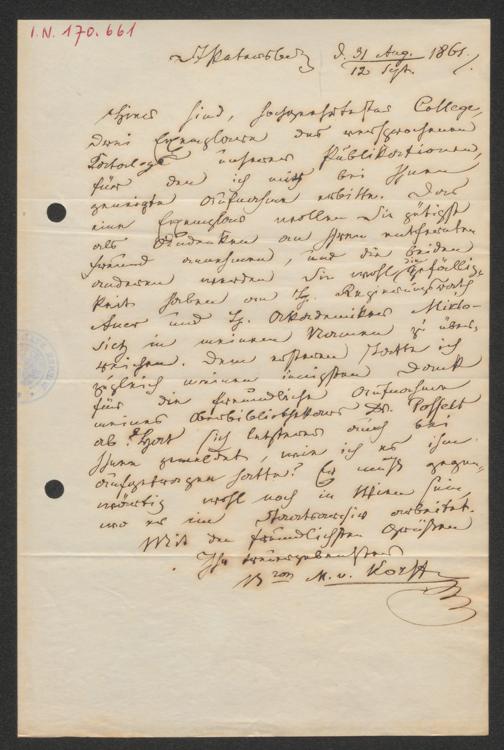 I.N. 170.661
St Petersburg d. 31 Aug. 1861.
12 Sept.
Hier sind, hochgeehrtester College,
drei Exemplare des versprochenen
Katalogs unserer Publikationen,
für den ich mir bei Ihnen
geneigte Aufnahme erbitte. Das
eine Exemplar wollen Sie gütigst
als Andenken an Ihren entfernten
Freund annehmen, und die beiden
anderen werden Sie wohl die Gefällig-
keit haben an H. Regierungsrath
Auer und H. Akademiker Miklo-
sich in meinem Namen zu über-
reichen. Dem ersteren statte ich
zugleich meinen innigsten Dank
für die freundliche Aufnahme
meines Oberbibliothekars Dr. Posselt
ab. Hat sich letzterer auch bei
Ihnen gemeldet, wie ich es ihm
aufgetragen hatte? Er muß gegen-
wärtig wohl noch in Wien sein,
wo er im Staatsarchiv arbeitet.
Mit den freundlichsten Grüßen
Ihr treuergebenster
B ron M. v. Korff